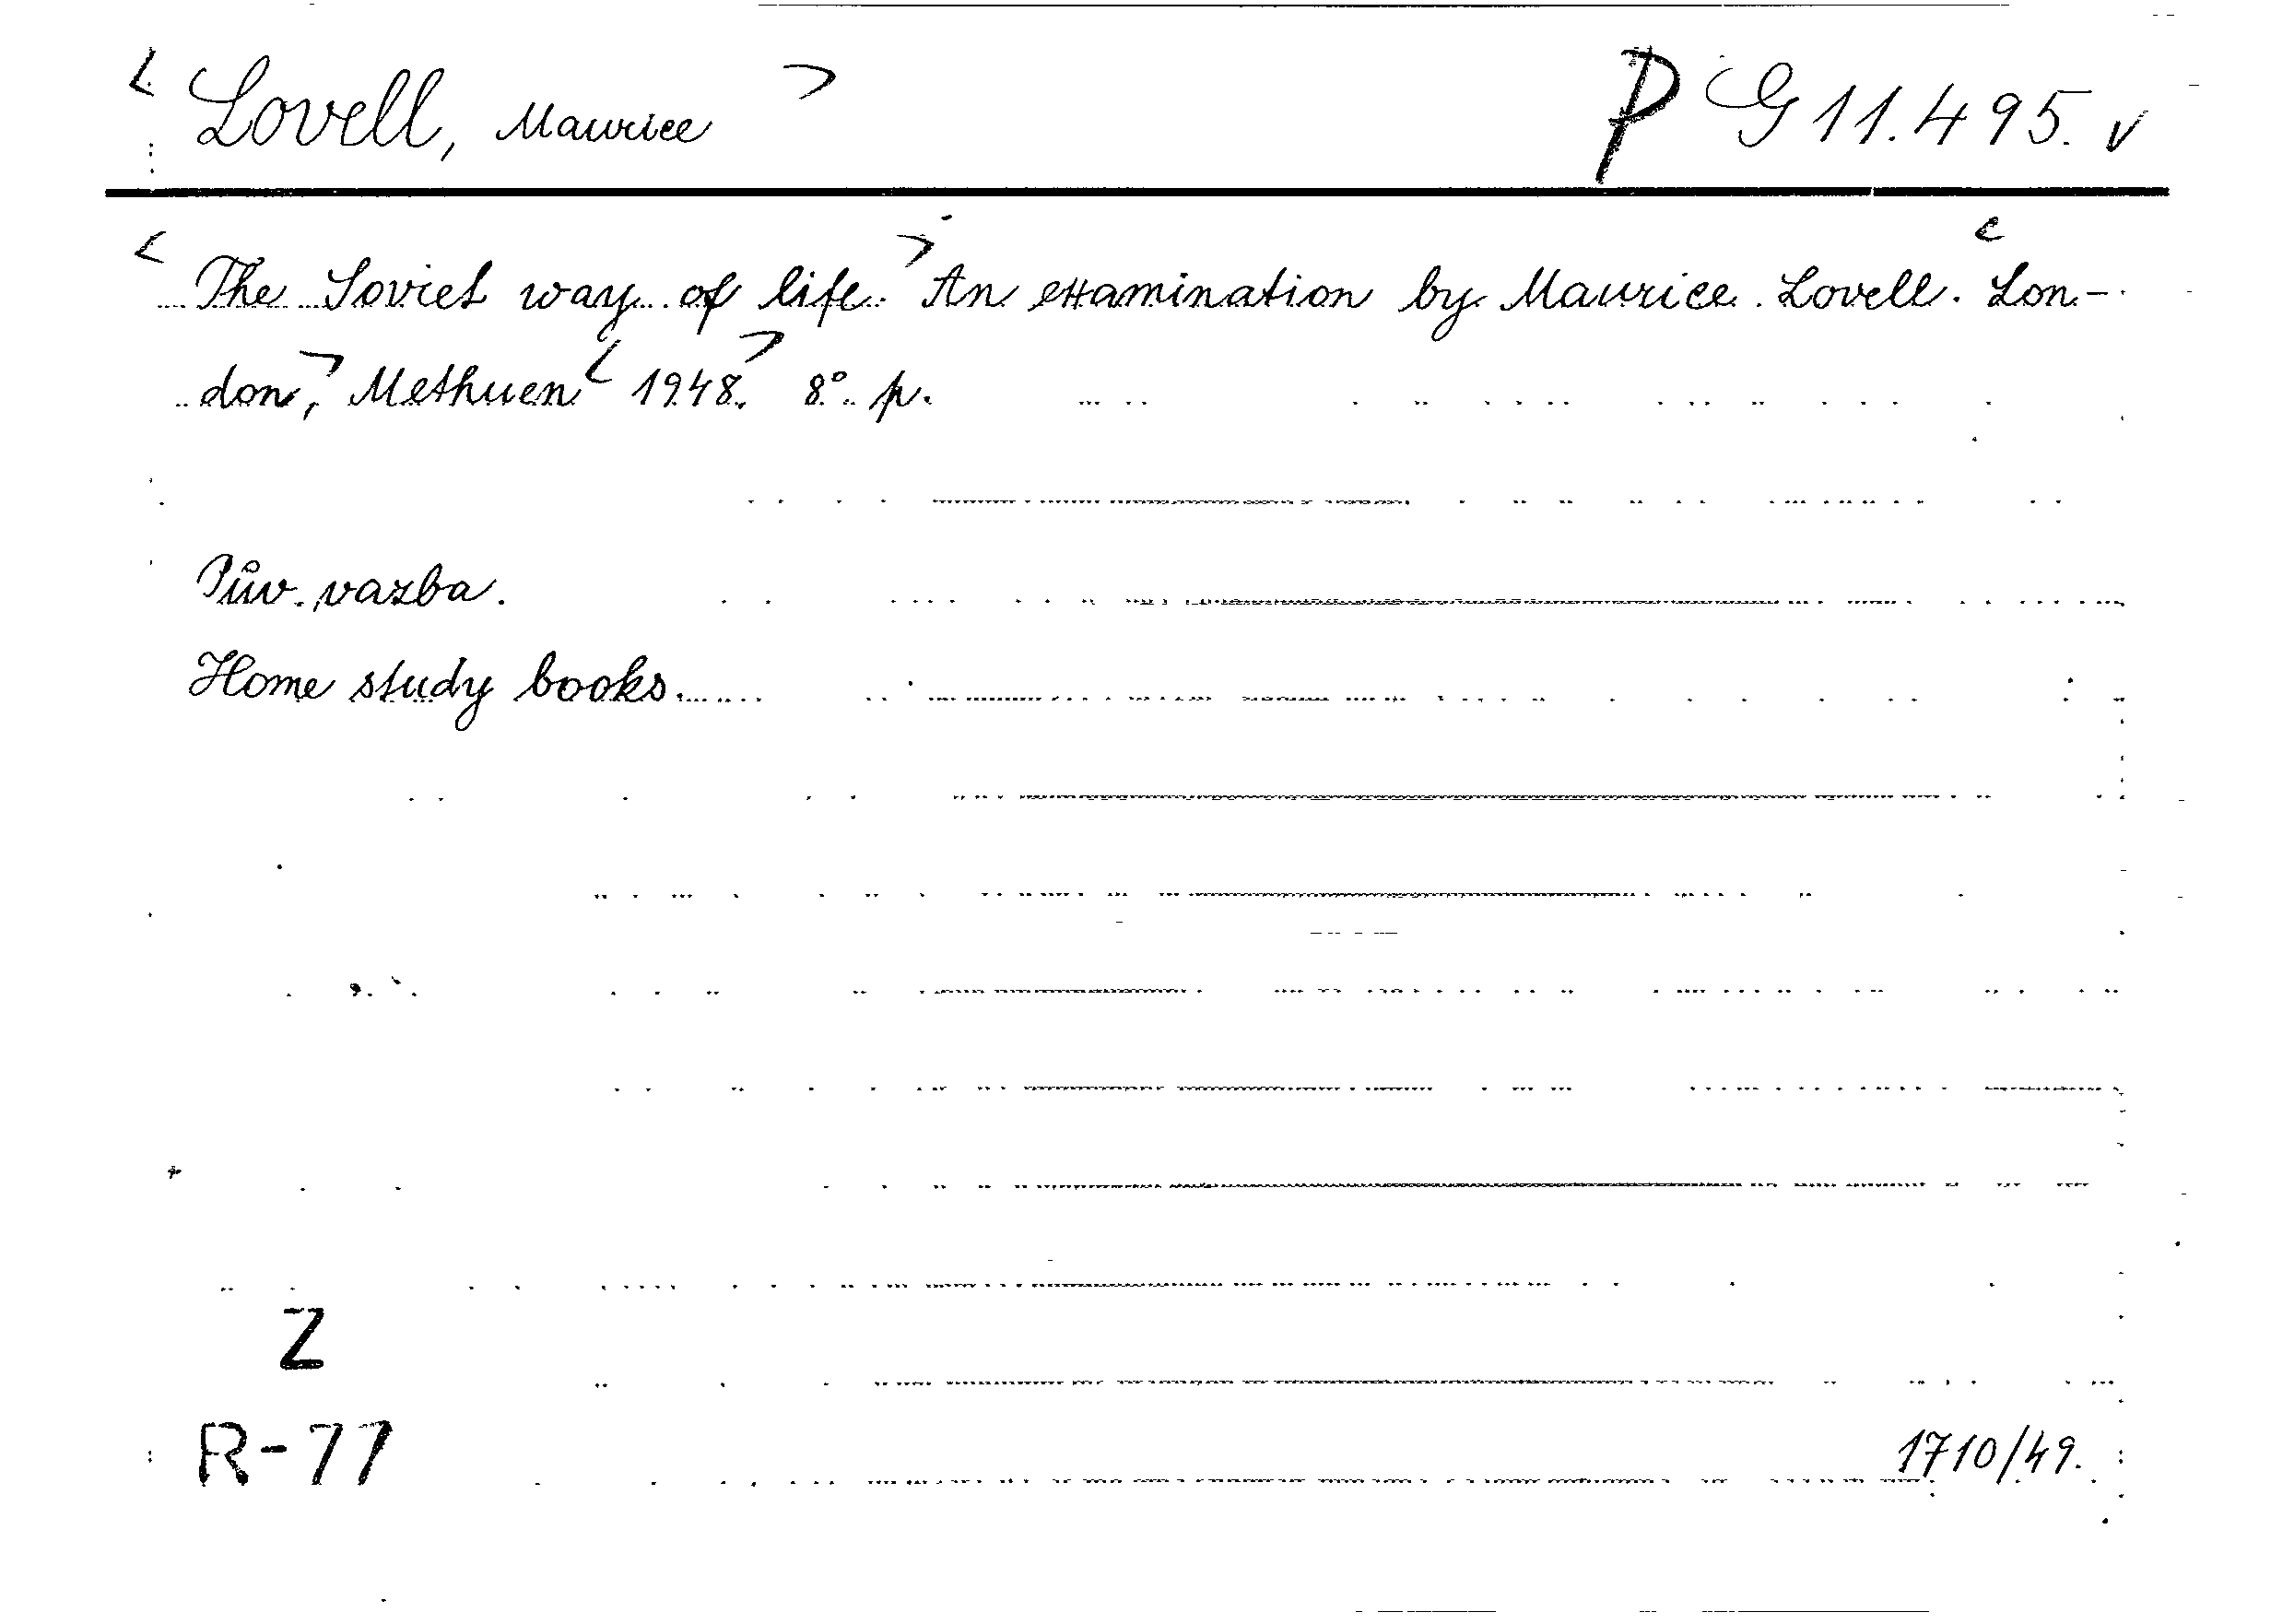 < Lovell, Maurice > P G 11.495. v
< The Soviet way of life. > An examination by Maurice Lovell. < Lon-
don, > Methuen < 1948. > 8° p.
Pův. vazba.
Home study books.
Z
R-77
1710/49.